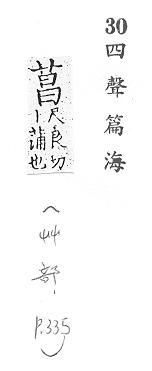 30四聲篇海
菖尺良切
丨蒲也
(艸部.P.335)